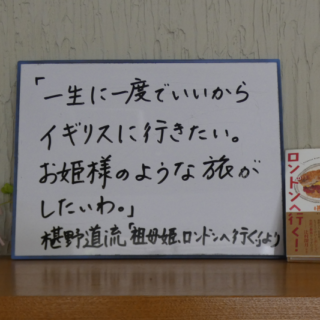 「一生に一度でいいから
イギリスに行きたい。
お姫様のような旅が
したいわ。」
椹野道流「祖母姫、ロンドンへ行く!」より
ロンドンへ行く!